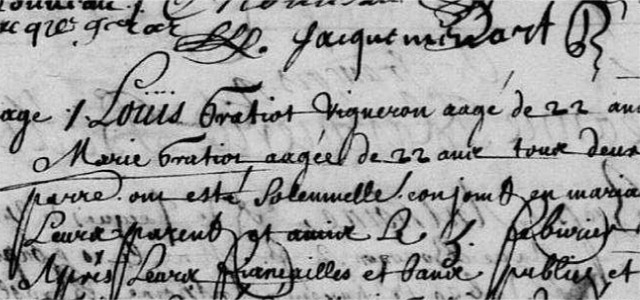 Jacqueminart
age / Louis Gratiot Vigneron aagé de 22 ans
Marie Gratiot aagée de 22 ans tous deux
parre. ont esté solennelle. conjoints en maria
Leurs parents et amis Le 3. febvrier
Apres Leurs fiancailles et bans publies et